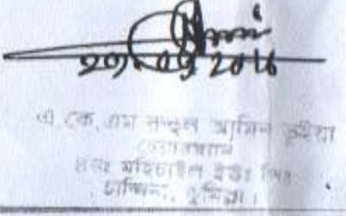 27.09.2016
এ, কে, এম নজরুল আমিন ভূইয়া
চেয়ারম্যান
৪নং মহিচাইল ইউঃ পিঃ
চান্দিনা, কুমিল্লা।